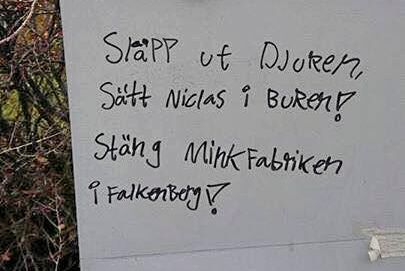 Släpp ut Djuren,
Sätt Niclas i Buren!
Stäng Minkfabriken
i Falkenberg!